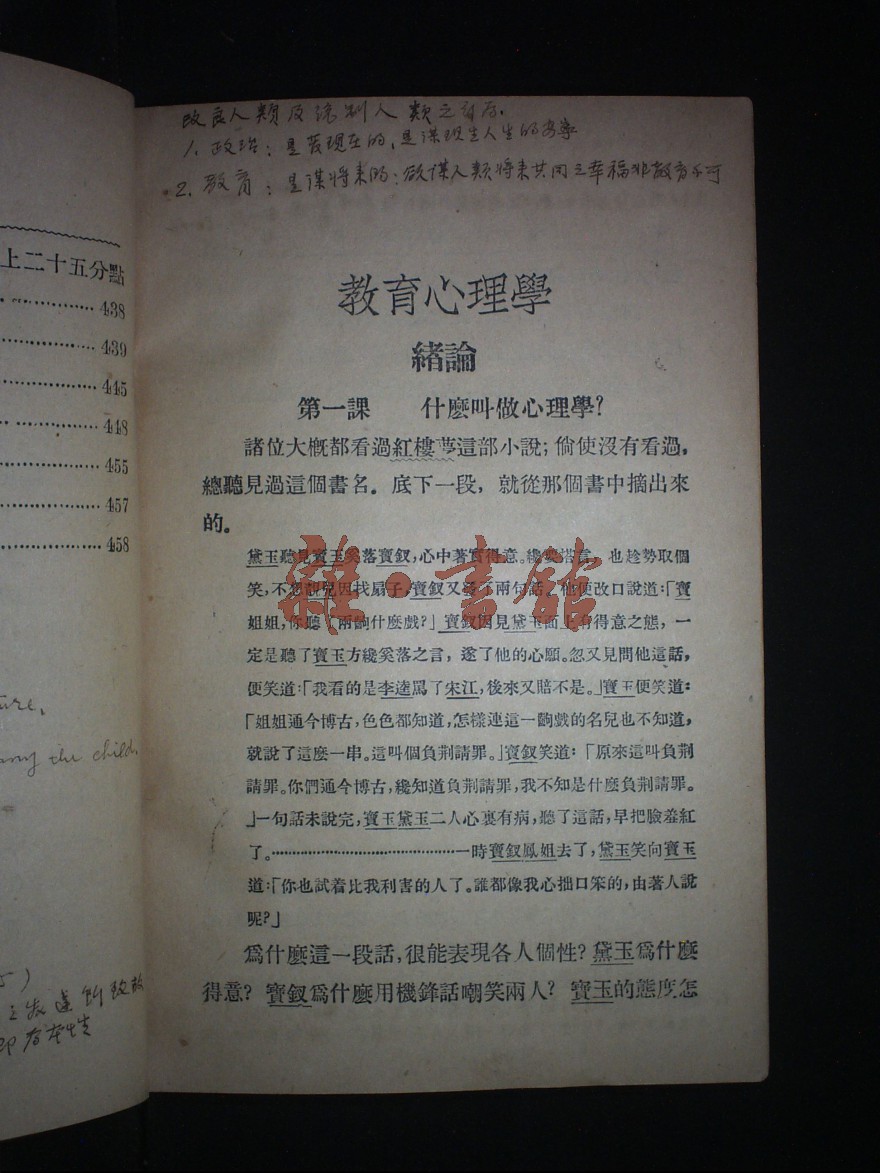 上二十五分點
438
439
445
448
455
457
458
ture,
the child,
改良人類及統制人類之
1. 政治：是發現在的，是謀現生人生的安寧
2. 教育：是謀將來的：欲謀人類將來共同之幸福非教育不可
教育心理學
緒論
第一課 什麼叫做心理學？
諸位大概都看過紅樓夢這部小說；倘使沒有看過，
總聽見過這個書名。底下一段，就從那個書中摘出來
的。
黛玉聽見寶玉奚落寶釵，心中著實得意。纔要搭言，也趁勢取個
笑，不想靚兒因找扇子，寶釵又發了兩句話。他便改口說道：「寶
姐姐，你聽了兩齣什麼戲？」寶釵因見黛玉面上有得意之態，一
定是聽了寶玉方纔奚落之言，遂了他的心願。忽又見問他這話，
便笑道：「我看的是李逵罵了宋江，後來又賠不是。」寶玉便笑道：
「姐姐通今博古，色色都知道，怎樣連這一齣戲的名兒也不知道，
就說了這麼一串。這叫個負荆請罪。」寶釵笑道：「原來這叫負荆
請罪。你們通今博古，纔知道負荆請罪，我不知是什麼負荆請罪。
」一句話未說完，寶玉黛玉二人心裏有病，聽了這話，早把臉羞紅
了。……………………………一時寶釵鳳姐去了，黛玉笑向寶玉
道：「你也試着比我利害的人了。誰都像我心拙口笨的，由著人說
呢？」
爲什麼這一段話，很能表現各人個性？黛玉爲什麼
得意？寶釵爲什麼用機鋒話嘲笑兩人？寶玉的態度怎
雜·書館